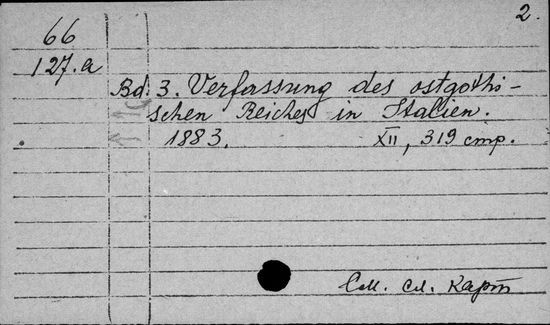 2.
66
127.a
Bd. 3. Verfassung des ostgothi-
schen Reiches in Italien.
1883. XII, 319 стр.
См. сл. карт